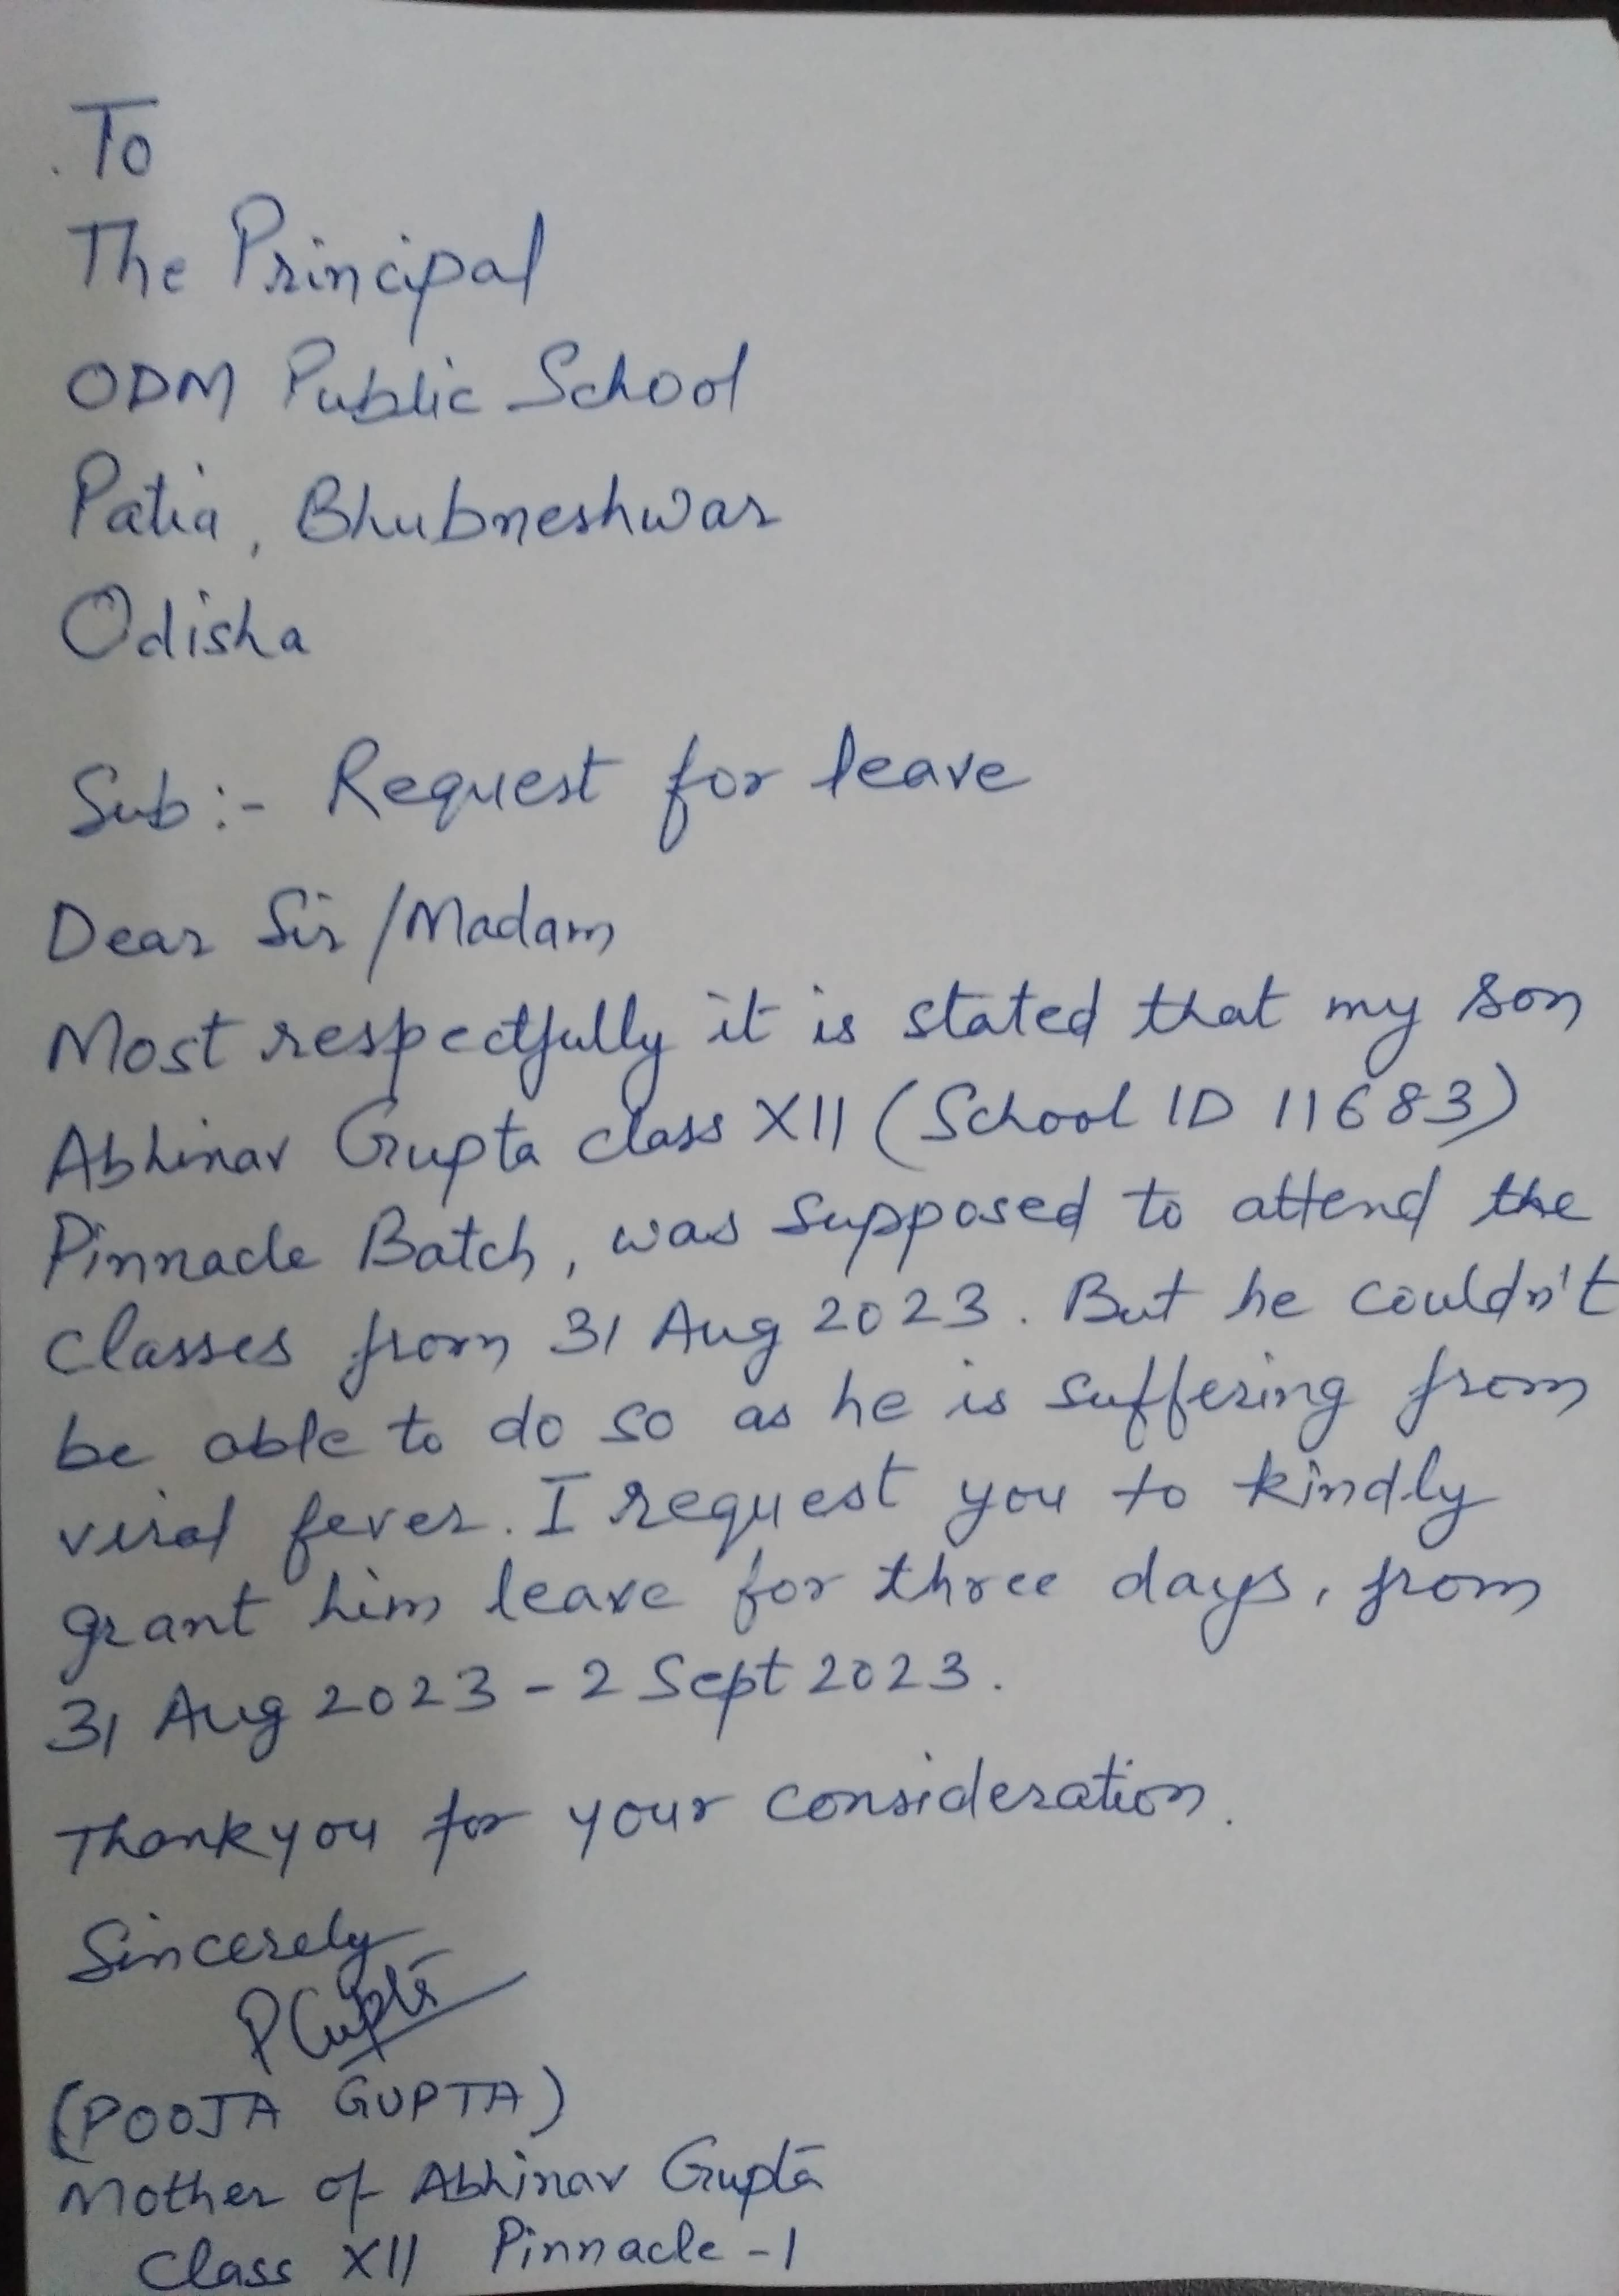 To
The Principal
ODM Public School
Patia, Bhubneshwar
Odisha
Sub:- Request for leave
Dear Sir/Madam
Most respectfully it is stated that my son
Abhinav Gupta class XII (School ID 11683)
Pinnacle Batch, was supposed to attend the
classes from 31 Aug 2023. But he couldn't
be able to do so as he is suffering from
viral fever. I request you to kindly
grant him leave for three days, from
31 Aug 2023 - 2 Sept 2023.
Thankyou for your consideration.
Sincerely
PGupta
(POOJA GUPTA)
Mother of Abhinav Gupta
Class XII Pinnacle -1